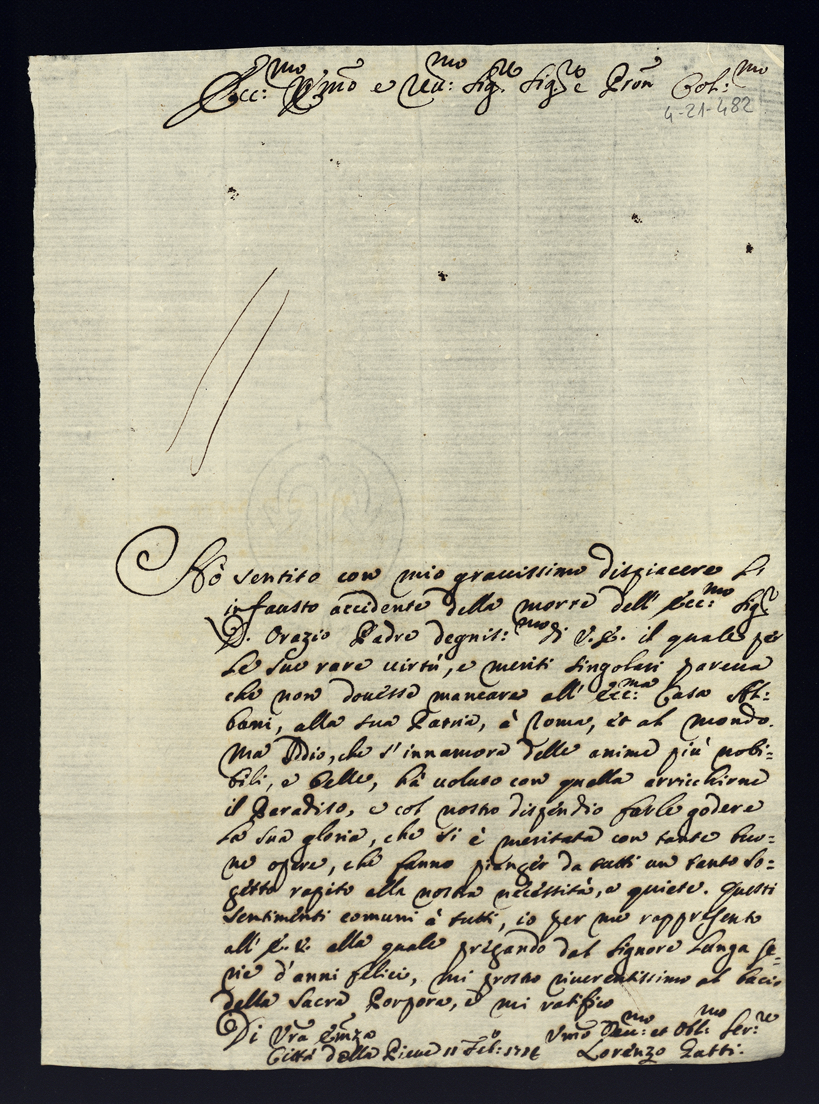 Ecc:mo Rmo e Reu:mo Sig.re Sig.re e Pron Col:mo
4-21-482
Hò sentito con mio grauissimo dispiacere l'
infausto accidente della morte dell' Ecc:mo Sig.r
D. Orazio Padre degnis:mo di V.E. il quale per
le sue rare uirtù, e meriti singolari pareua
che non douesse mancare all' Ecc:ma Casa Al=
bani, alla sua Patria, à Roma, et al mondo.
Ma Iddio, che s'innamora delle anime più nobi=
bili, e belle, hà uoluto con quella arricchirne
il Paradiso, e col nostro dispendio farle godere
la sua gloria, che si è meritata con tante buo=
ne opere, che fanno pianger da tutti un tanto so=
getto rapito alla nostra necessità, e quiete. Questi
sentimenti comuni à tutti, io per me rappresento
all' E.V. alla quale pregando dal Signore lunga se=
rie d'anni felici, mi prostro riuerentissimo al bacio
della Sacra Porpora, e mi ratifico
Di Vra Emza
Vmo Deu:mo et Obl:mo Ser:re
Città della Pieue 11 Feb:o
Lorenzo Gatti.